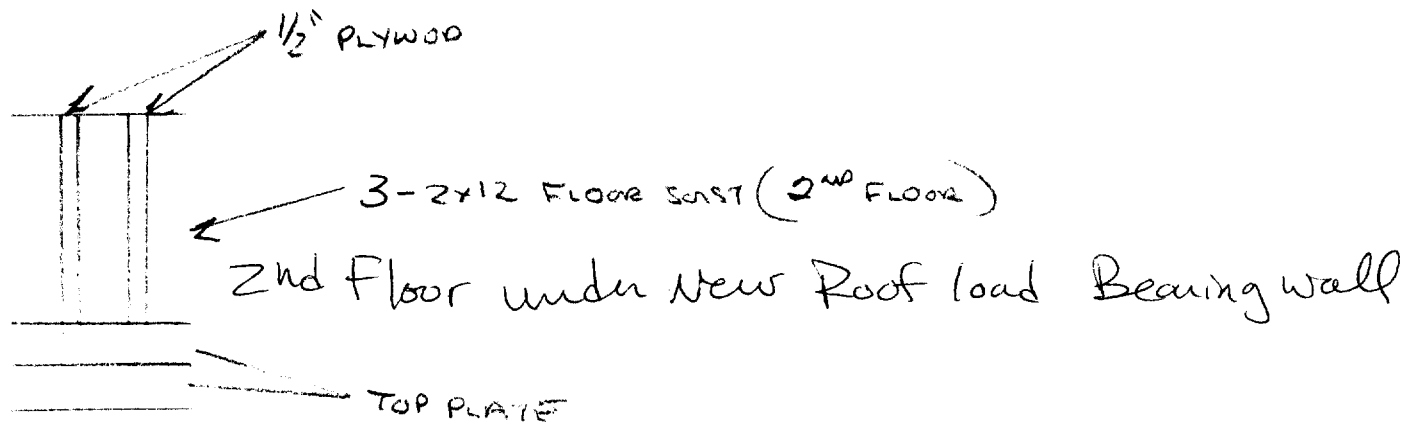 1/2" PLYWOD
3-2x12 FLOOR JOIST (2ND FLOOR)
2nd Floor under New Roof load Bearing wall
TOP PLATE